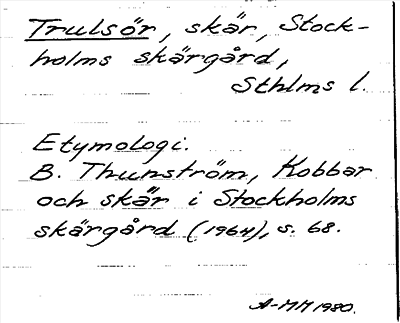 Trulsör, skär, Stock-
holms skärgård,
Sthlms l.
Etymologi.
B. Thunström, Kobbar
och skär i Stockholms
skärgård (1964), s. 68.
A-MM 1980.